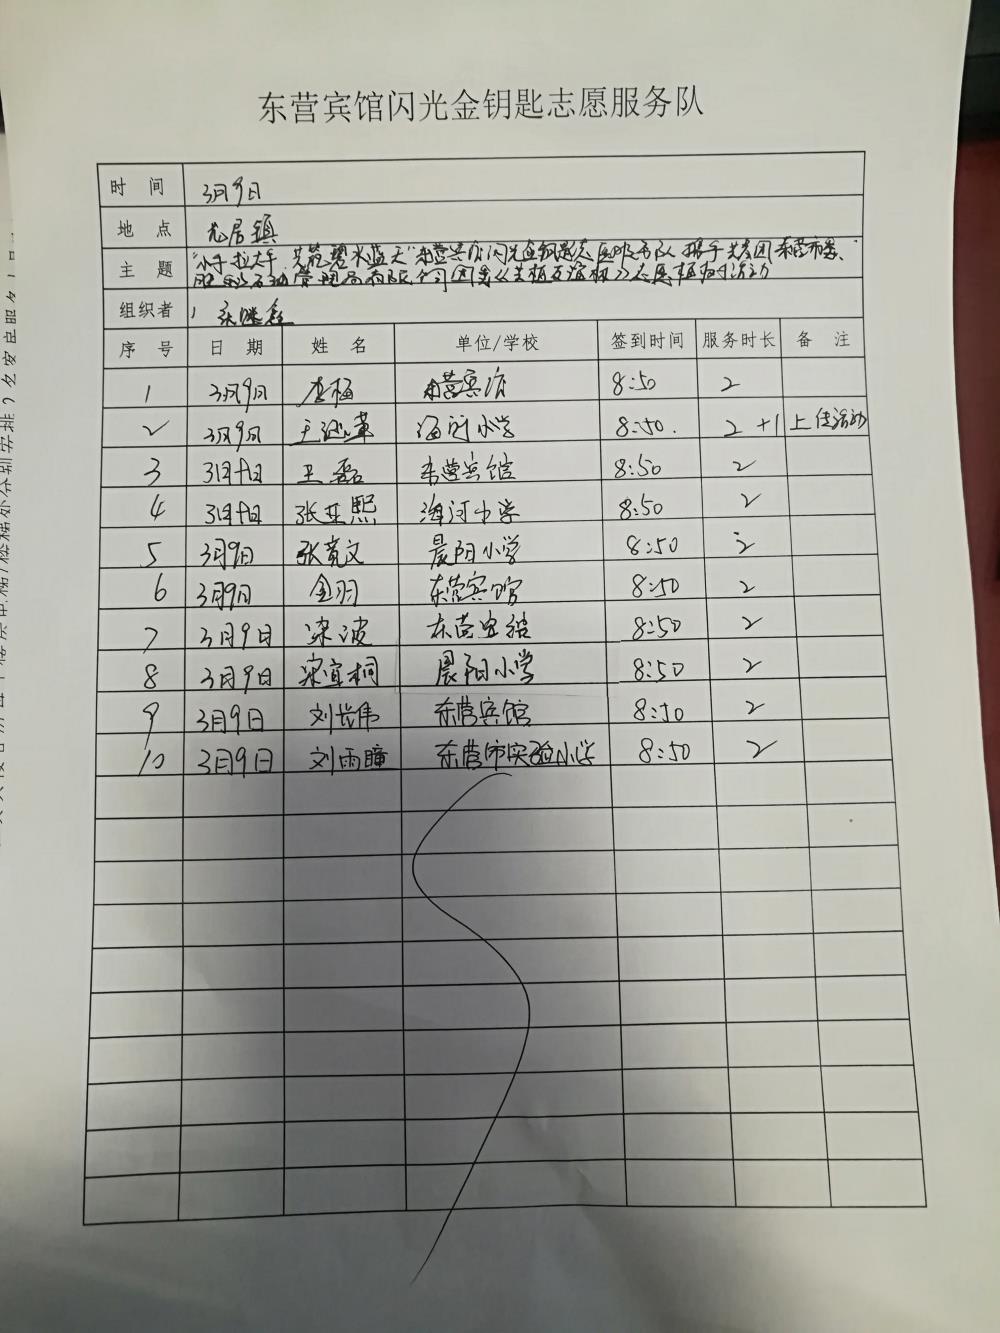 东营宾馆闪光金钥匙志愿服务队
时 间 3月9日
地 点 龙居镇
主 题 "小手拉大手 共范碧水蓝天"东营宾馆闪光金钥匙志愿服务队携手共青团东营市委、
胜利石油管理局有限公司团委《共植互演林》志愿植树活动
组织者
序 号 日 期 姓 名 单位/学校 签到时间 服务时长 备 注
1 3月9日 李梅 东营宾馆 8:50 2
2 3月9日 海河小学 8:50. 2 +1 上传活动
3 3月9日 王磊 东营宾馆 8:50 2
4 3月9日 张芷熙 海河小学 8:50 2
5 3月9日 张竞文 晨阳小学 8:50 2
6 3月9日 金羽 东营宾馆 8:50 2
7 3月9日 梁波 东营宾馆 8:50 2
8 3月9日 梁宜桐 晨阳小学 8:50 2
9 3月9日 刘长伟 东营宾馆 8:50 2
10 3月9日 刘雨瞳 东营市实验小学 8:50 2